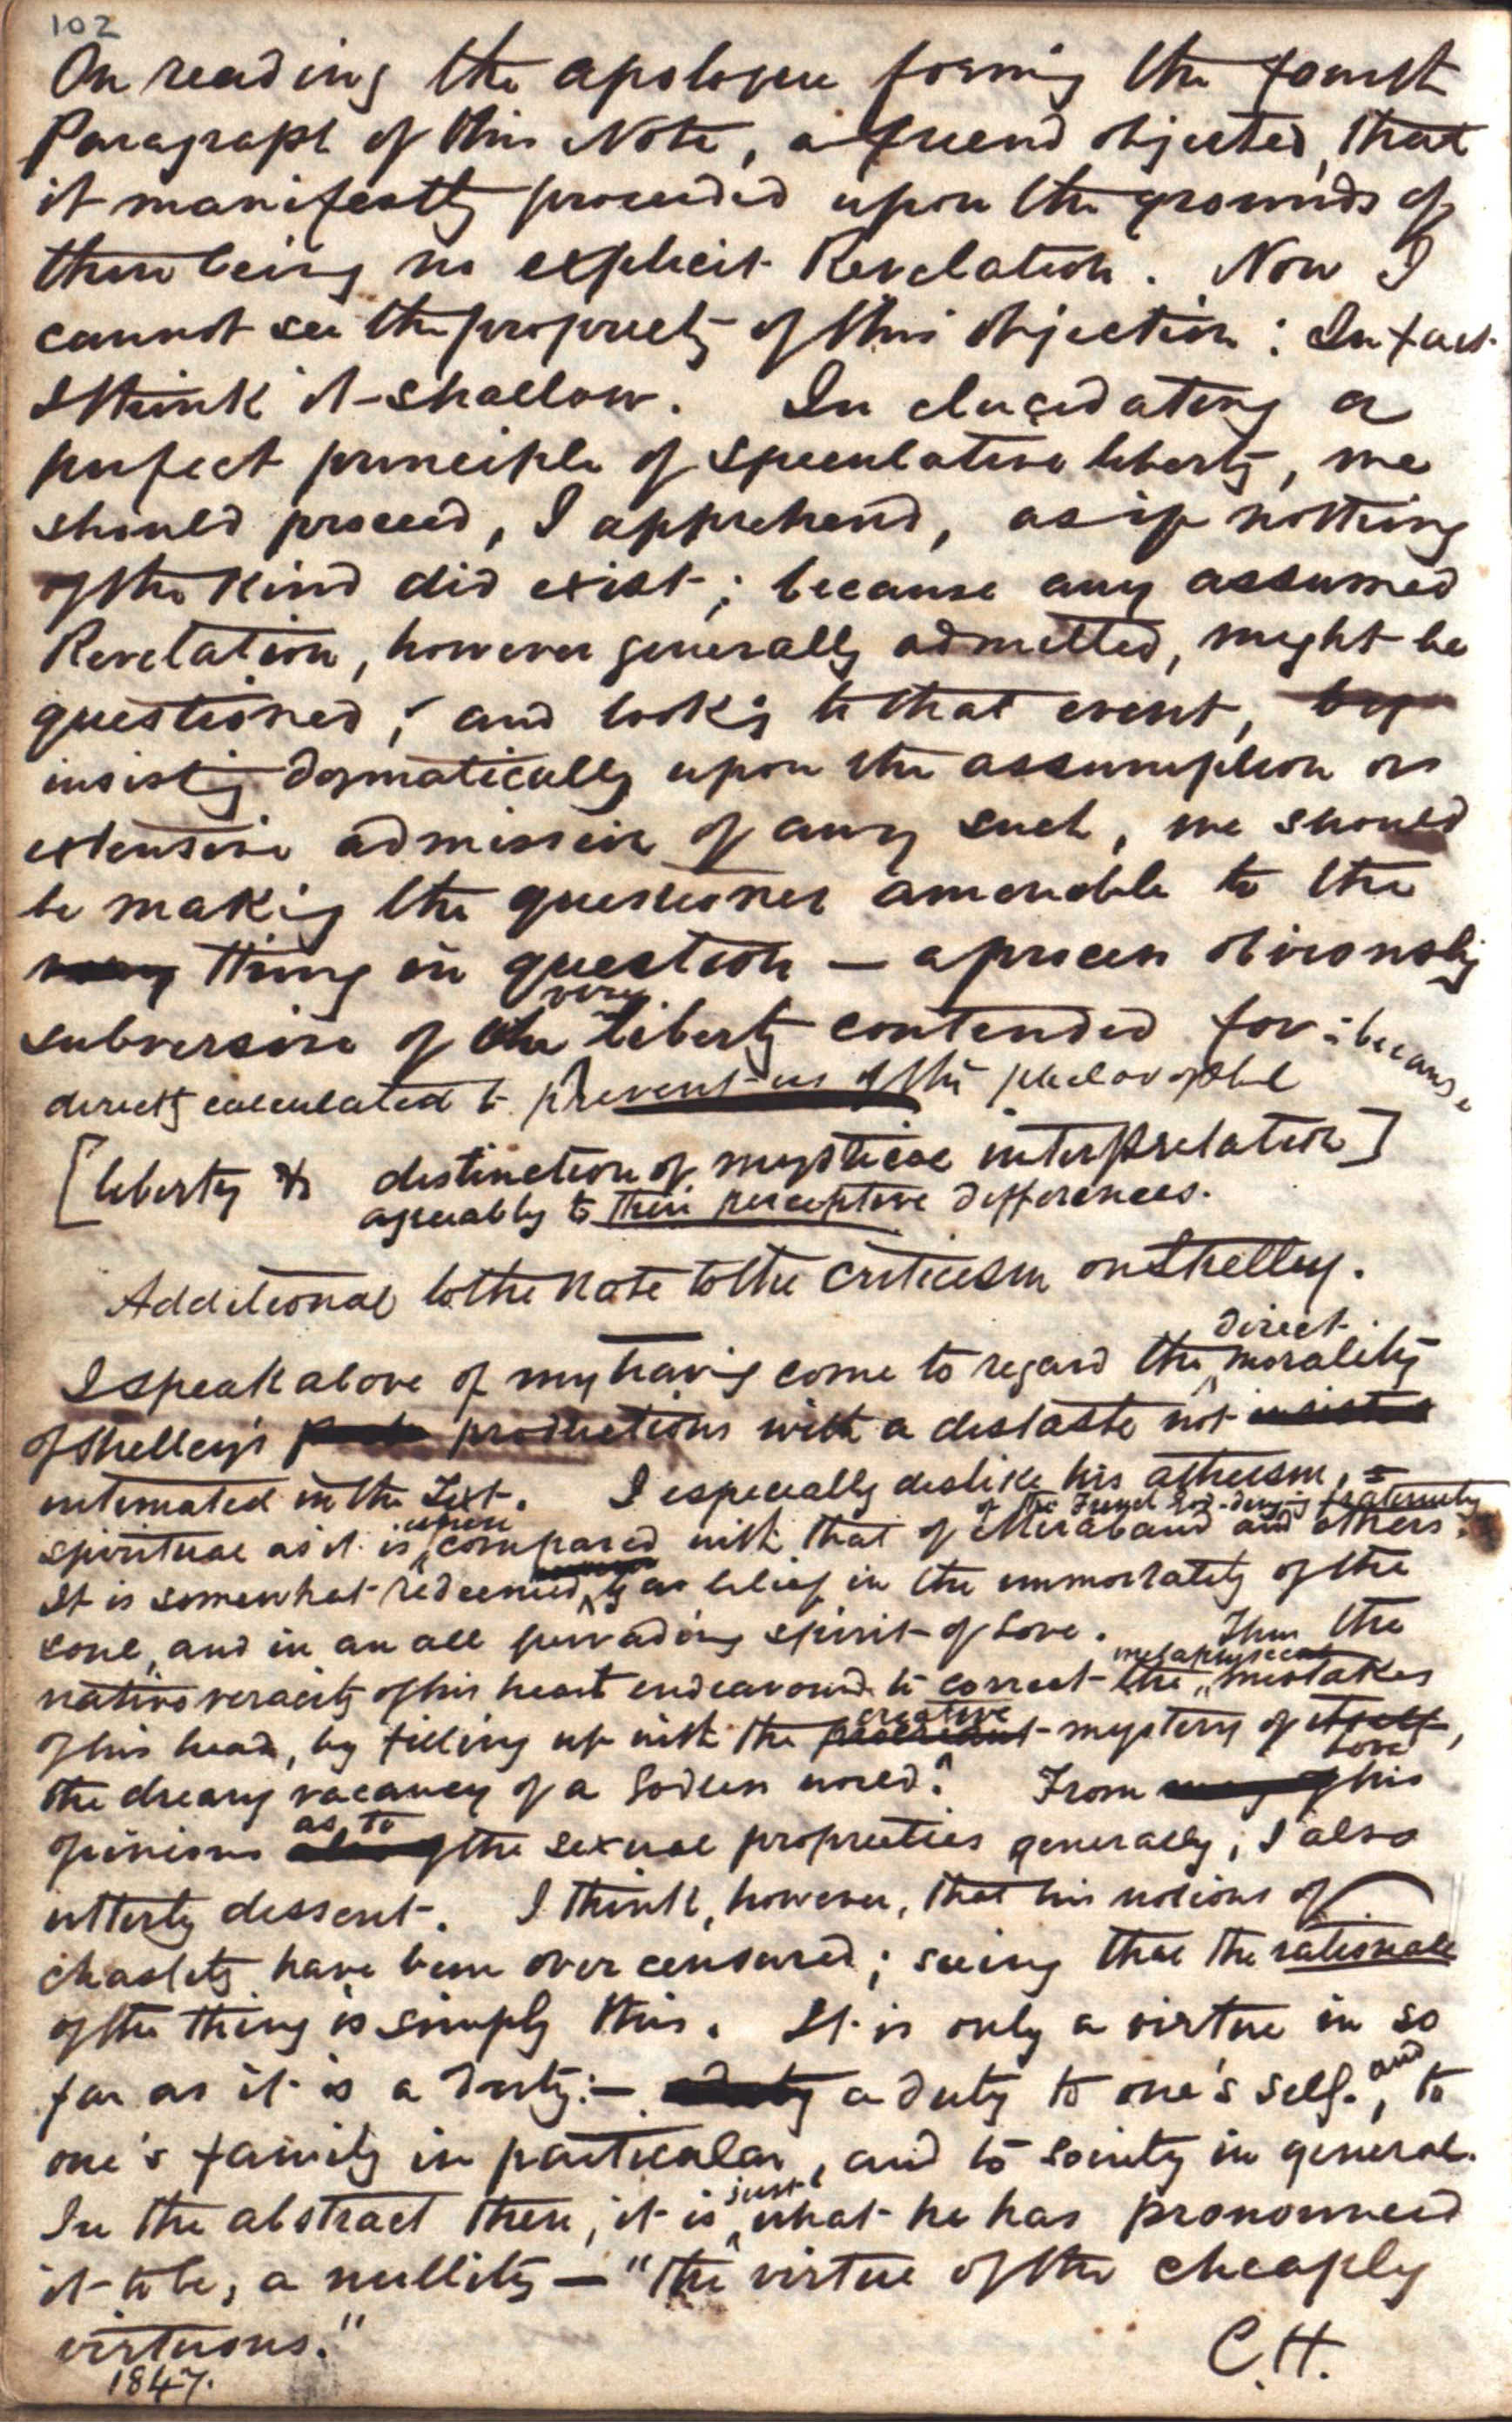 102
On reading the apologue forming the fourth
Paragraph of this Note, a friend objected, that
it manifestly proceeded upon the grounds of
there being no explicit Revelation. Now I
cannot see the propriety of this objection: In fact
I think it shallow. In elucidating a
perfect principle of speculative liberty, we
should proceed, I apprehend, as if nothing
of the kind did exist; because any assumed
Revelation, however generally admitted, might be
questioned; and looking to that event, by
insisting dogmatically upon the assumption or
extensive admission of any such, we should
be making the questioner amenable to the
very thing in question — a process obviously
very
subversive of the liberty contended for: because
directly calculated to prevent us of the philosophical
[liberty & distinction of mystical interpretation]
agreeably to their perceptive differences.
Additional to the Note to the criticism on Shelley.
direct
I speak above of my having come to regard the morality
of Shelley's productions with a distaste not
intimated in the Text. I especially dislike his atheism,
of the French God-denying fraternity
spiritual as it is when compared with that of Miraband and others.
It is somewhat redeemed, by a belief in the immortality of the
soul, and in an all pervading spirit of Love. Thus the
metaphysical
native veracity of his heart endeavoured to correct the mistakes
creative
of his head, by filling up with the procreant mystery of itself,
Love
the dreary vacancy of a Godless world. From his
as to
opinions the sexual proprieties generally, I also
utterly dissent. I think, however, that his notions of
chastity have been over censured; seeing that the rationale
of the thing is simply this. It is only a virtue in so
far as it is a duty:— a duty to one's self, and to
one's family in particular, and to society in general.
just
In the abstract then, it is what he has pronounced
it to be, a nullity — "the virtue of the cheaply
virtuous."
C.H.
1847.